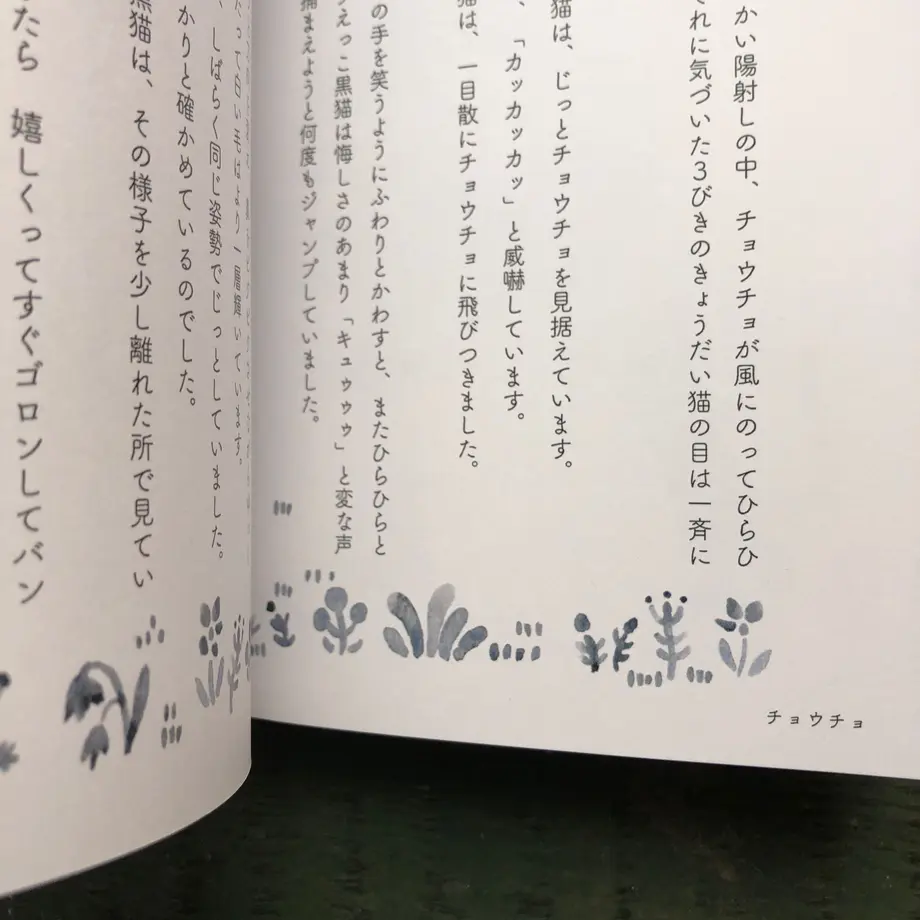 かい陽射しの中、チョウチョが風にのってひらひ
れに気づいた3びきのきょうだい猫の目は一斉に
猫は、じっとチョウチョを見据えています。
、「カッカッカッ」と威嚇しています。
猫は、一目散にチョウチョに飛びつきました。
の手を笑うようにふわりとかわすと、またひらひらと
えっこ黒猫は悔しさのあまり「キュゥゥゥ」と変な声
捕まえようと何度もジャンプしていました。
チョウチョ
たって白い毛はより一層輝いています。
、しばらく同じ姿勢でじっとしていました。
かりと確かめているのでした。
黒猫は、その様子を少し離れた所で見てい
たら 嬉しくってすぐゴロンしてバン